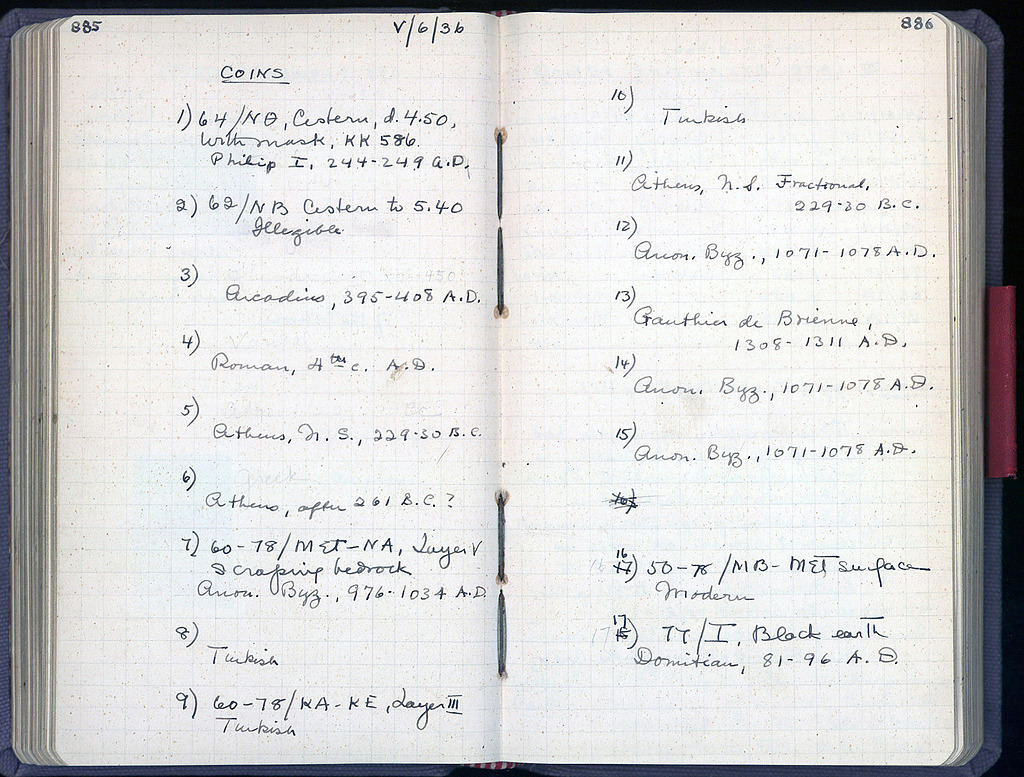 885
V/6/36
COINS
1) 64/NΘ, Cistern, d. 4.50,
With mask, KK 586.
Philip I, 244-249 A.D.
2) 62/NB Cistern to 5.40
Illegible
3)
Arcadius, 395-408 A.D.
4)
Roman, 4th c. A.D.
5)
Athens, N.S., 229-30 B.C.
6)
Athens, after 261 B.C.?
7) 60-78/MΣT-NA, Layer V
Scraping bedrock
Anon. Byz., 976-1034 A.D.
8)
Turkish
9) 60-78/KA-KE, Layer III
Turkish
886
10)
Turkish
11)
Athens, N.S. Fractional,
229-30 B.C.
12)
Anon. Byz., 1071-1078 A.D.
13)
Gauthier de Brienne,
1308-1311 A.D.
14)
Anon. Byz., 1071-1078 A.D.
15)
Anon. Byz., 1071-1078 A.D.
16) 50-78/MB-MΣT Surface
Modern
17) 77/I, Black earth
Domitian, 81-96 A.D.